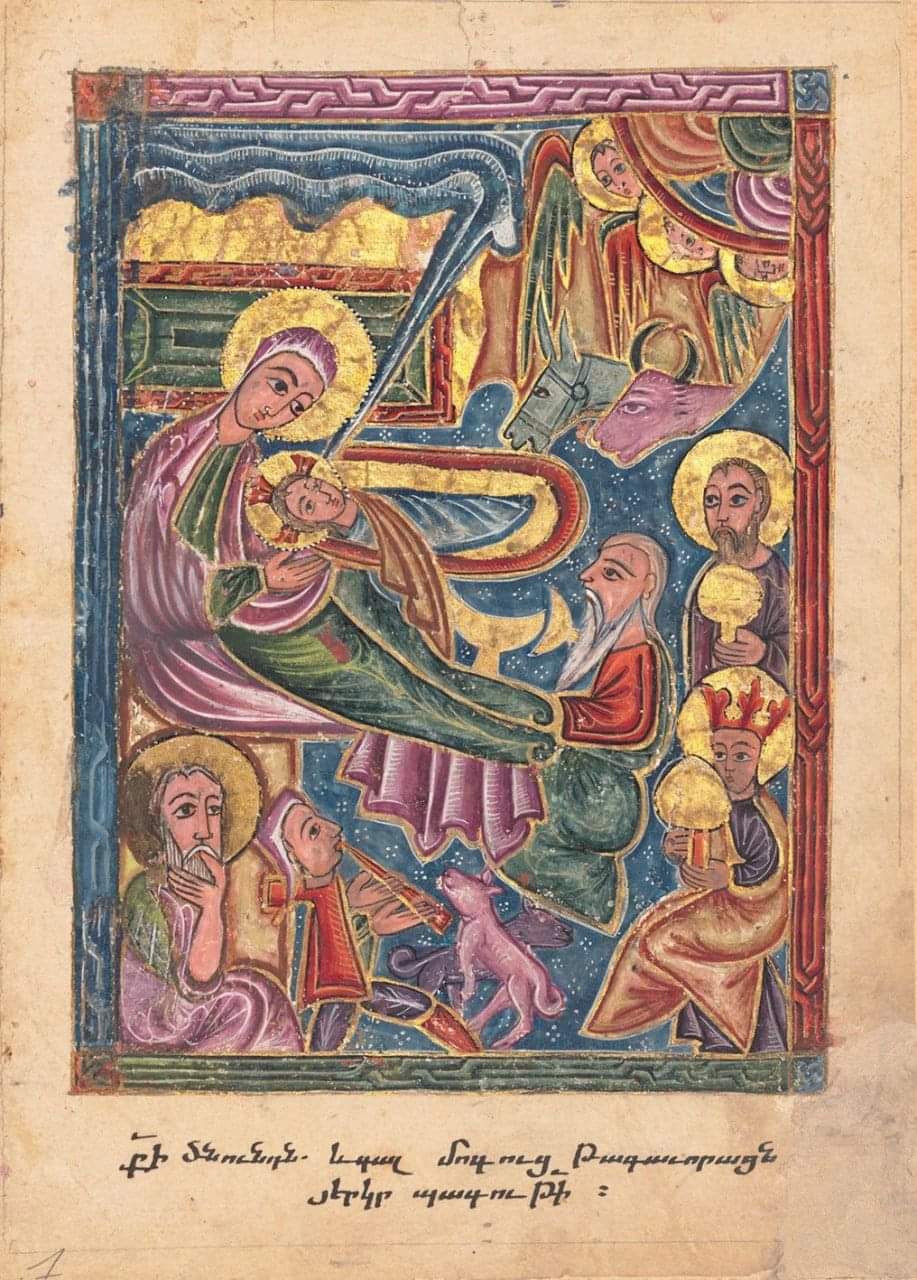 ք՟ի ծնունդն. և գալ մոգուց թագաւորացն
յերկր պագու թ՟ի ։
1